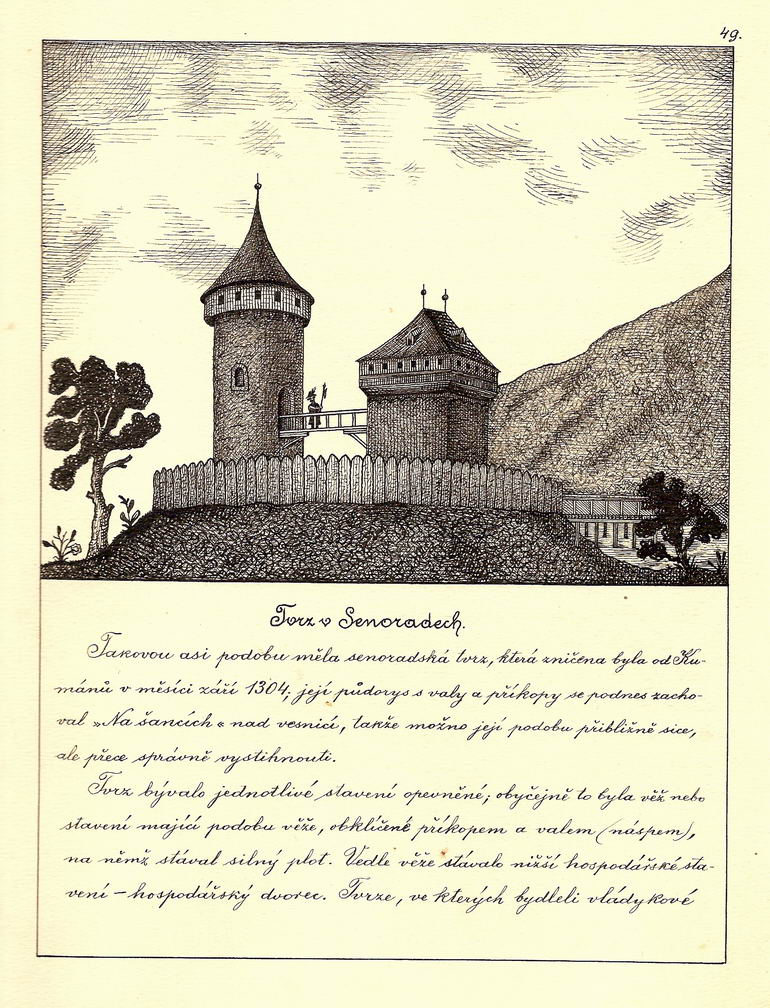 49.
Tvrz v Senoradech.
Takovou asi podobu měla senoradská tvrz, která zničena byla od Ku-
mánů v měsíci září 1304; její půdorys s valy a příkopy se podnes zacho-
val »Na šancích« nad vesnicí, takže možno její podobu přibližně sice,
ale přece správně vystihnouti.
Tvrz bývalo jednotlivé stavení opevněné; obyčejně to byla věž nebo
stavení mající podobu věže, obklíčené příkopem a valem (náspem),
na němž stával silný plot. Vedle věže stávalo nižší hospodářské sta-
vení – hospodářský dvorec. Tvrze, ve kterých bydleli vládykové